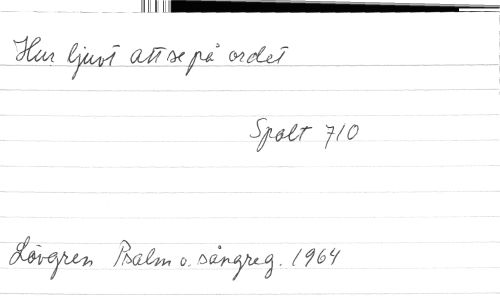 Hur ljuvt att se på ordet
Spalt 710
Lövgren Psalm o. sångreg. 1964